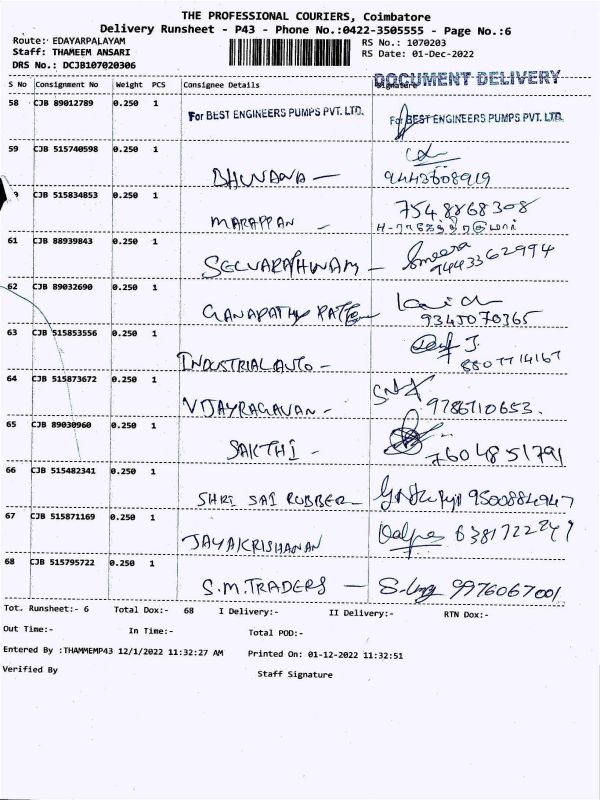 THE PROFESSIONAL COURIERS, Coimbatore
Delivery Runsheet - P43 - Phone No.:0422-3505555 - Page No.:6
Route: EDAYARPALAYAM
RS No.: 1070203
Staff: THAMEEM ANSARI
RS Date: 01-Dec-2022
DRS No.: DCJB107020306
DOCUMENT DELIVERY
S No Consignment No Weight PCS Consignee Details Signature
58 CJB 89012789 0.250 1 For BEST ENGINEERS PUMPS PVT. LTD. For BEST ENGINEERS PUMPS PVT. LTD.
59 CJB 515740598 0.250 1
BHUVANA — 9443608919
9 CJB 515834853 0.250 1 7548868308
MARAPPAN -
61 CJB 88939843 0.250 1
SELVARATHINAM - Smeera 9443362994
62 CJB 89032690 0.250 1
GANAPATHY 9345070365
63 CJB 515853556 0.250 1
INDUSTRIAL AUTO - 8807714167
64 CJB 515873672 0.250 1
VIJAYRAGAVAN - 9786710653.
65 CJB 89030960 0.250 1
SAKTHI - 7604851791
66 CJB 515482341 0.250 1
SHRI SAI RUBBER - 9500884947
67 CJB 515871169 0.250 1
JAYAKRISHANAN 6381722247
68 CJB 515795722 0.250 1
S.M.TRADERS — 9976067001
Tot. Runsheet:- 6 Total Dox:- 68 I Delivery:- II Delivery:- RTN Dox:-
Out Time:- In Time:- Total POD:-
Entered By :THAMMEMP43 12/1/2022 11:32:27 AM Printed On: 01-12-2022 11:32:51
Verified By Staff Signature